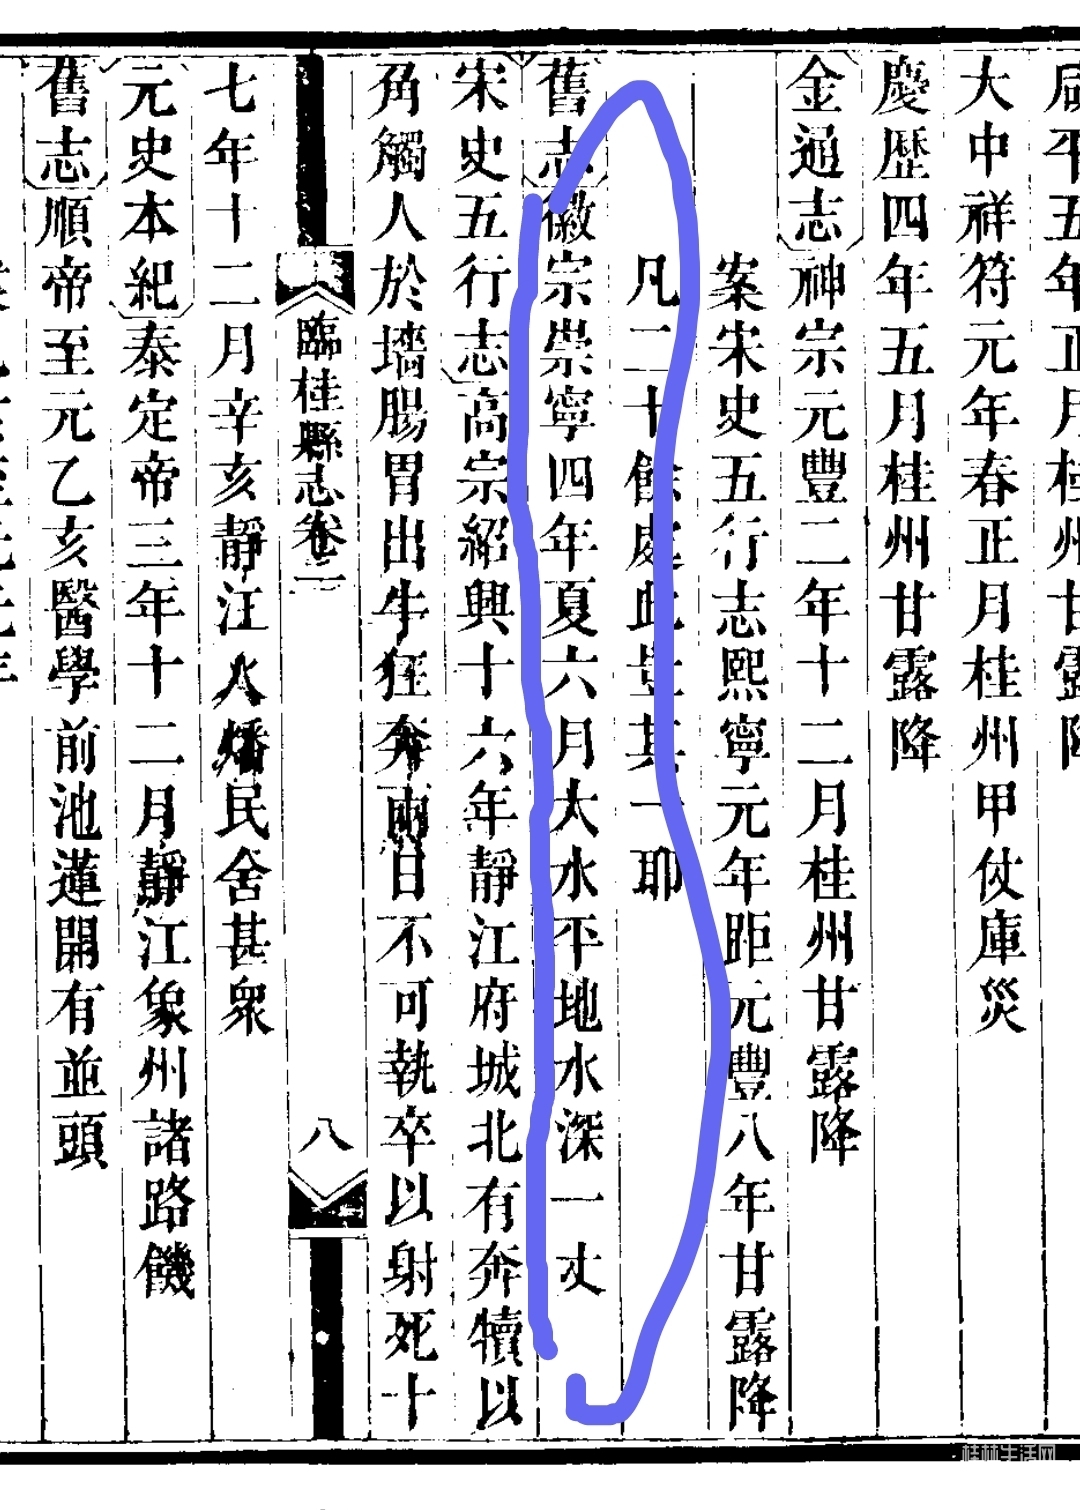 咸平五年正月桂州甘露降
大中祥符元年春正月桂州甲仗庫災
慶歷四年五月桂州甘露降
金通志神宗元豐二年十二月桂州甘露降
案宋史五行志熙寧元年距元豐八年甘露降
凡二十餘處此豈其一耶
舊志徽宗崇寧四年夏六月大水平地水深一丈
宋史五行志高宗紹興十六年靜江府城北有奔犢以
角觸人於墻腸胃出牛狂奔兩日不可執卒以射死十
臨桂縣志卷二
八
七年十二月辛亥靜江火燔民舍甚衆
元史本紀泰定帝三年十二月靜江象州諸路饑
舊志順帝至元乙亥醫學前池蓮開有並頭
桂林生活网